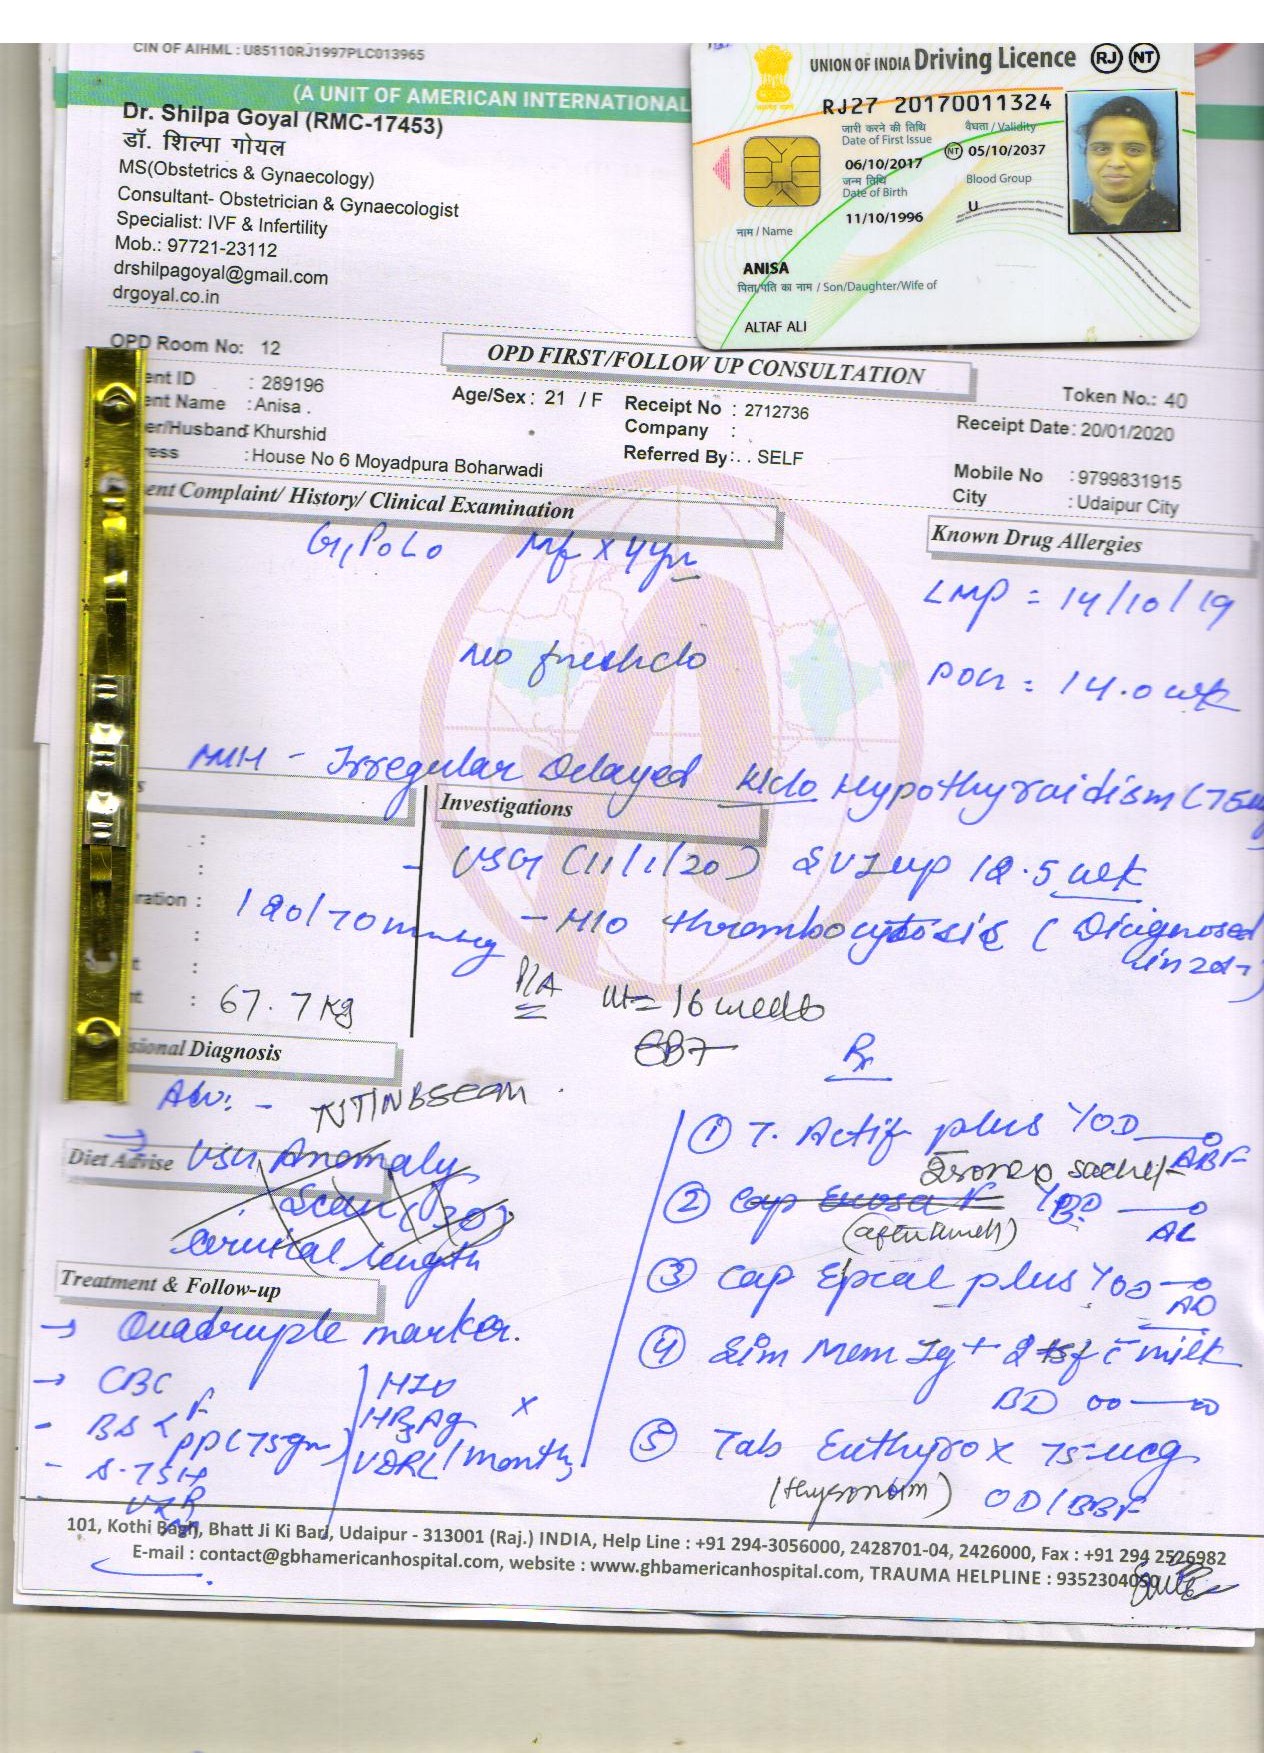 CIN OF AIHML : U85110RJ1997PLC013965
(A UNIT OF AMERICAN INTERNATIONAL
Dr. Shilpa Goyal (RMC-17453)
डॉ. शिल्पा गोयल
MS(Obstetrics & Gynaecology)
Consultant- Obstetrician & Gynaecologist
Specialist: IVF & Infertility
Mob.: 97721-23112
drshilpagoyal@gmail.com
drgoyal.co.in
UNION OF INDIA Driving Licence RJ NT
RJ27 20170011324
जारी करने की तिथि वैधता / Validity
Date of First Issue
06/10/2017 NT 05/10/2037
जन्म तिथि Blood Group
Date of Birth
11/10/1996 U
नाम / Name
ANISA
पिता/पति का नाम / Son/Daughter/Wife of
ALTAF ALI
OPD Room No: 12
OPD FIRST/FOLLOW UP CONSULTATION
Token No.: 40
ent ID : 289196
ent Name : Anisa .
er/Husband : Khurshid
ress : House No 6 Moyadpura Boharwadi
Age/Sex : 21 / F
Receipt No : 2712736
Company :
Referred By : . . SELF
Receipt Date : 20/01/2020
Mobile No : 9799831915
City : Udaipur City
ent Complaint/ History/ Clinical Examination
Known Drug Allergies
G1P0L0 Mf x 4yr
LMP = 14/10/19
no fresh c/o
POG = 14.0 wk
M/H - Irregular Delayed K/c/o Hypothyroidism (75
Investigations
- USG (11/1/20) 12.5 wk
ration : 120/70 mmHg
- H/O thrombocytosis (Diagnosed
in
P/A ut = 16 weeks
: 67.7 kg
sional Diagnosis
Rx
Adv: - NT/NB scan
Diet Advise
USG Anomaly
Scan
cervical length
Treatment & Follow-up
→ Quadruple marker.
→ CBC
- BS < F
PP (75gm)
- S. TSH
HIV
HBsAg
VDRL
① T. Actif plus 1 OD
ABF
sachet
② BD
(after lunch) AL
③ Cap Epical plus 1 OD
AD
④ Sim Mom Ig + 2 tsf c̄ milk
BD
⑤ Tab Euthyrox 75 mcg
(thyronorm) OD/BBF
101, Kothi Bagh, Bhatt Ji Ki Bari, Udaipur - 313001 (Raj.) INDIA, Help Line : +91 294-3056000, 2428701-04, 2426000, Fax : +91 294 2526982
E-mail : contact@gbhamericanhospital.com, website : www.ghbamericanhospital.com, TRAUMA HELPLINE : 9352304050